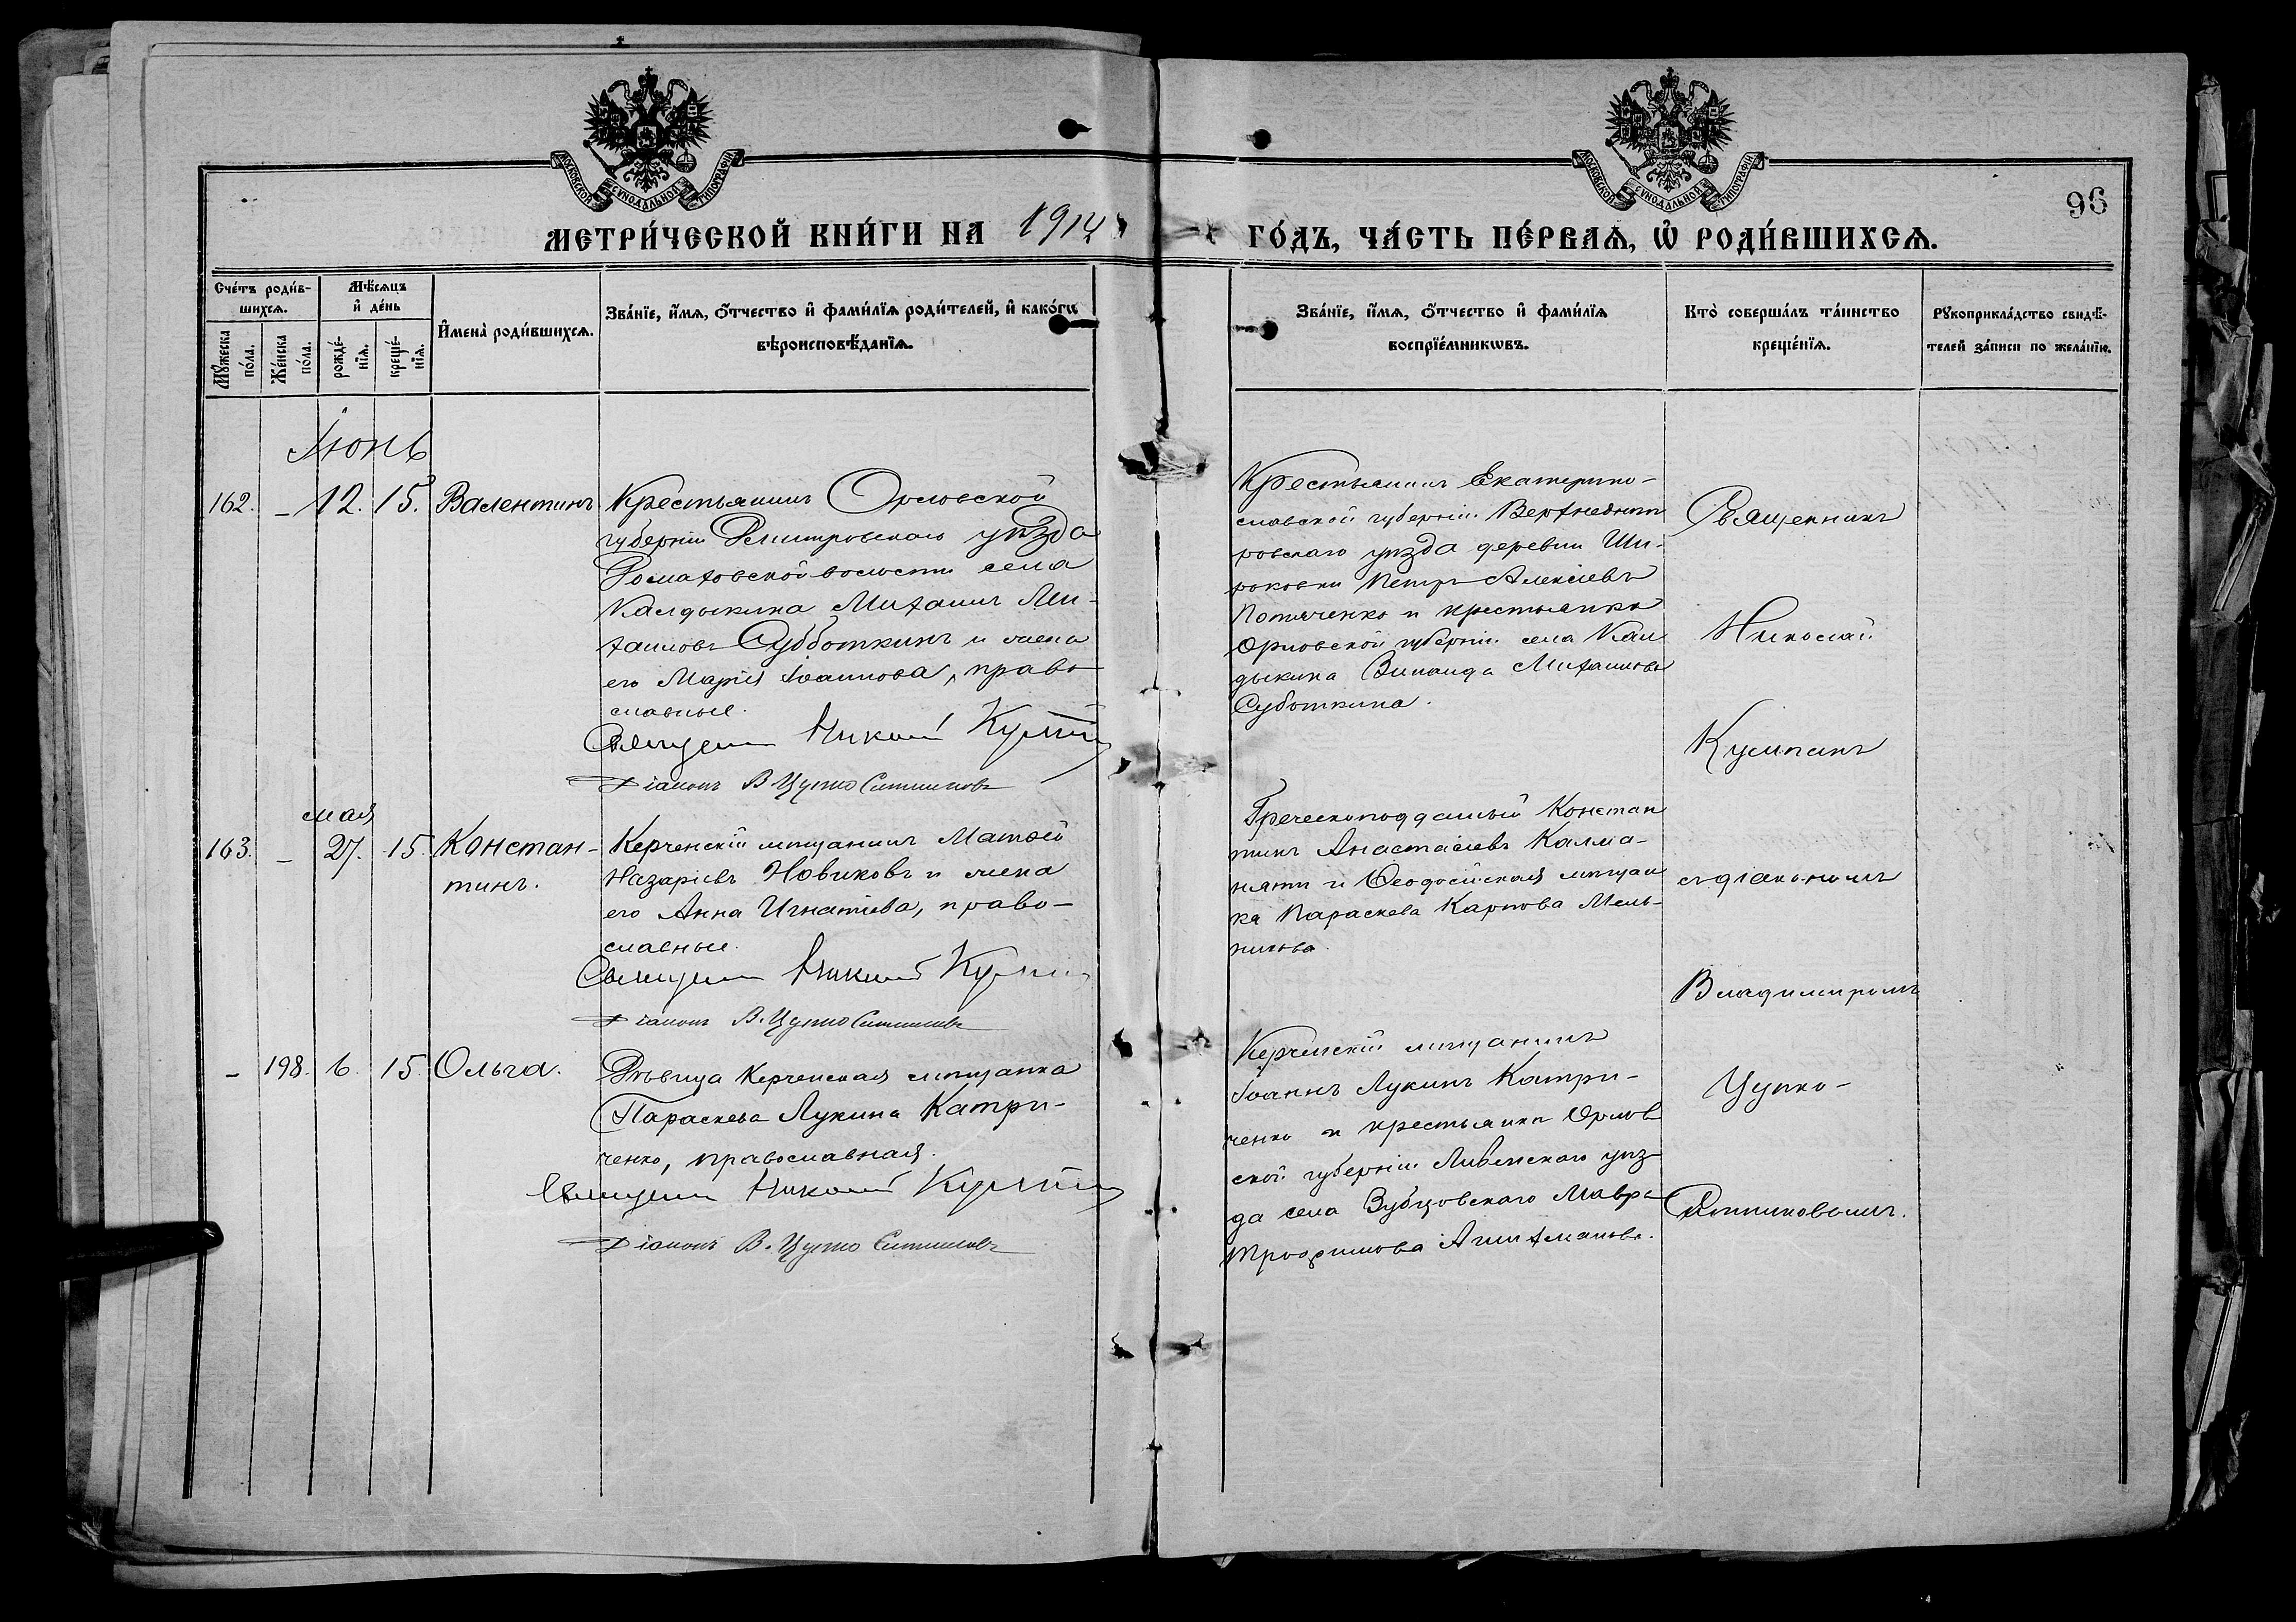 МОСКОВСКОЙ СѴНОДАЛЬНОЙ ТИПОГРАФІИ
МОСКОВСКОЙ СѴНОДАЛЬНОЙ ТИПОГРАФІИ
96
МЕТРИ́ЧЕСКОЙ КНИ́ГИ НА 1914
ГО́ДЪ, ЧА́СТЬ ПЕ́РВАѦ, Ѡ҆ РОДИ́ВШИХСѦ.
Сче́тъ роди́в-
шихсѧ.
Мѣ́сѧцъ
и҆ де́нь
Мꙋ́жеска
по́ла.
Же́нска
по́ла.
рожде́-
нїѧ.
креще́-
нїѧ.
И҆мена̀ роди́вшихсѧ.
Зва́нїе, и҆́мѧ, ѻ҆́тчество и҆ фами́лїѧ роди́телей, и҆ како́гѡ
вѣроисповѣ́данїѧ.
Зва́нїе, и҆́мѧ, ѻ҆́тчество и҆ фами́лїѧ
воспрїе́мникѡвъ.
Кто̀ соверша́лъ та́инство
креще́нїѧ.
Рꙋкоприкла́дство свидѣ́-
телей за́писи по жела́нїю.
Іюнь
162. – 12. 15. Валентинъ
Крестьянинъ Орловской
губерніи Дмитровскаго уѣзда
волости села
Калдыкина Михаилъ Ми-
хаиловъ Субботкинъ и жена
его Марія Іоаннова, право
славные.
Священникъ Николай Кумпанъ
Діаконъ В. Цупко Ситниковъ
Крестьянинъ Екатерино-
славской губерніи Верхнеднѣп
ровскаго уѣзда деревни Ши-
роковки Петръ Алексіевъ
Потяченко и крестьянка
Орловской губерніи села Кал
дыкина Зинаида Михаилова
Суботкина.
Священникъ
Николай
Кумпанъ
мая
163. – 27. 15. Констан-
тинъ.
Керченскій мѣщанинъ Матѳей
Назаріевъ Новиковъ и жена
его Анна Игнатіева, право-
славные.
Священникъ Николай Кумпанъ
Діаконъ В. Цупко Ситниковъ
Греческоподданный Констан
тинъ Анастасіевъ Калма-
няти и Ѳеодосійская мѣщан
ка Параскева Карпова Мель-
никова.
съ діакономъ
Владимиромъ
– 198. 6. 15. Ольга.
Дѣвица Керченская мѣщанка
Параскева Лукина Катри-
ченко, православная.
Священникъ Николай Кумпанъ
Діаконъ В. Цупко Ситниковъ
Керченскій мѣщанинъ
Іоаннъ Лукинъ Катри-
ченко и крестьянка Орлов
ской губерніи Ливенскаго уѣз-
да села Зубцовскаго Мавра
Трофимова
Цупко-
Ситниковымъ.